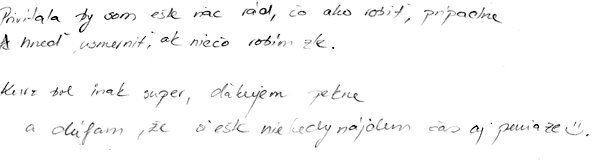 Privítala by som ešte viac rád, čo ako robiť, prípadne
hneď usmerniť, ak niečo robím zle.
Kurz bol inak super, ďakujem pekne
a dúfam, že si ešte niekedy nájdem čas aj peniaze ☺.